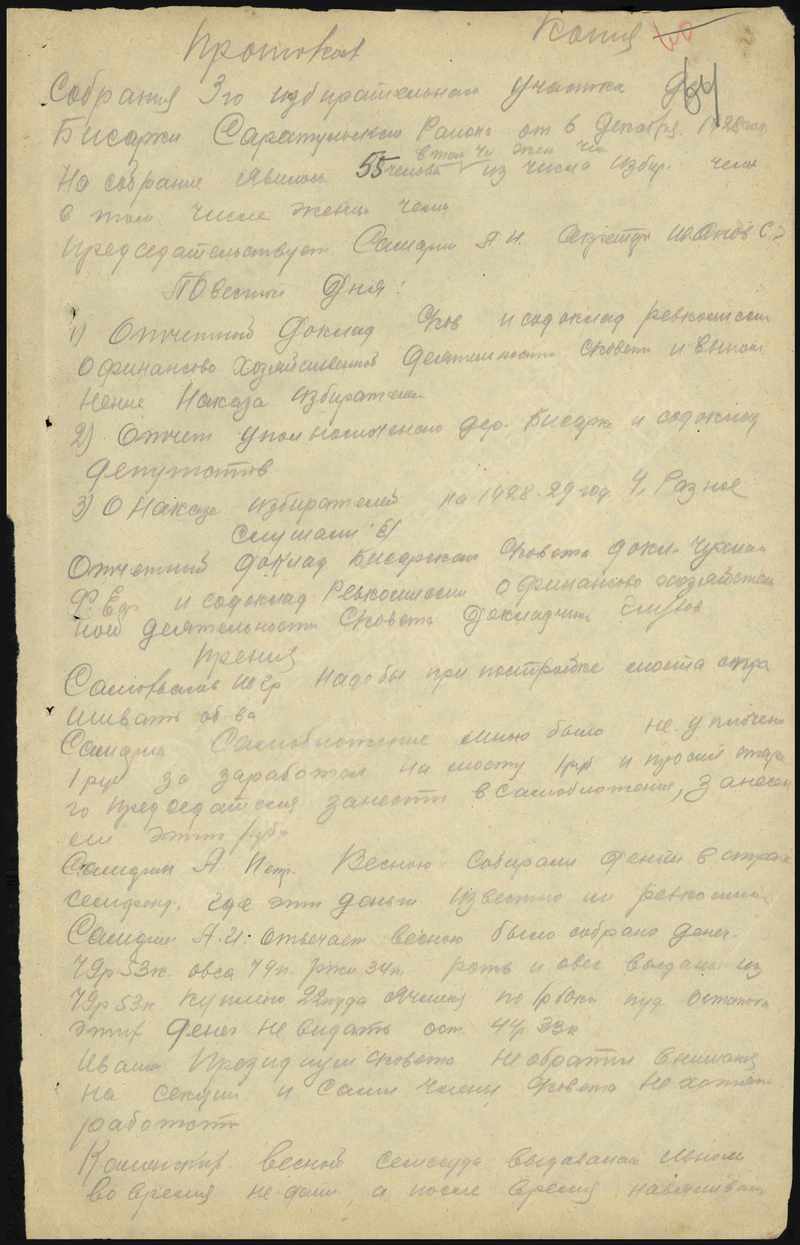 Копия 60
Протокол 64
Собрания 3го избирательнаго участка дер
Бисарки Сарапульскаго Района от 6 Декабря 1928 год
в том чи жен че
На собрание явилось 55 челова из числа избир. чело
в том числе женщ чело
Председательствует Самарин А Н. Секретарь Иванов С.
Повестка Дня:
1) Отчетный Доклад Сков и содоклад ревкомиссии
о финансово хозяйственной деятельности Совета и выпол
нение Наказа избирателей
2) Отчет уполномоченаго дер. Бисарк и содоклад
депутатов
3) О Наказе избирателей на 1928-29 год 4, Разное
слушали
Отчетный доклад Бисарскаго Совета докл.
и содоклад Ревкомиссии о финансово хозяйствен
ной деятельности Совета Докладчик
Прения
Надо бы при постройке моста спра
шивать об-ва
Самообложение мною было не уплочено
1 руб за заработал на мосту 1 руб и просил старо
го председателя занести в самообложение, занесен
ли этот рубль
А Петр. Весною собирали деньги в страх
семфонд. где эти деньги известно ли ревкомисии
А.И. отвечает весною было собрано денег
79р 53к. овса 79п. ржи 34п рожь и овес выданы из
79р 53к куплено 22 пуда ячменя по рубл пуд остаток
этих денег не видать ост. 44р 33к
Иванов Президиум Совета не обратил внимания
на секции и сами члены Совета не хотят
работать
весной семссуду выдавали
во время не дали, а после время навяливали